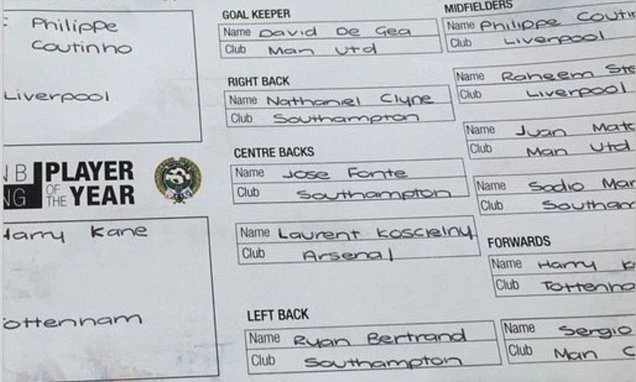 Philippe
Coutinho
Liverpool
N B PLAYER
NG OF THE YEAR
Harry Kane
Tottenham
GOAL KEEPER
Name David De Gea
Club Man Utd
RIGHT BACK
Name Nathaniel Clyne
Club Southampton
CENTRE BACKS
Name Jose Fonte
Club Southampton
Name Laurent Koscielny
Club Arsenal
LEFT BACK
Name Ryan Bertrand
Club Southampton
MIDFIELDERS
Name Philippe Coutin
Club Liverpool
Name Raheem Ste
Club Liverpool
Name Juan Mata
Club Man Utd
Name Sadio Man
Club Southam
FORWARDS
Name Harry K
Club Tottenha
Name Sergio
Club Man C